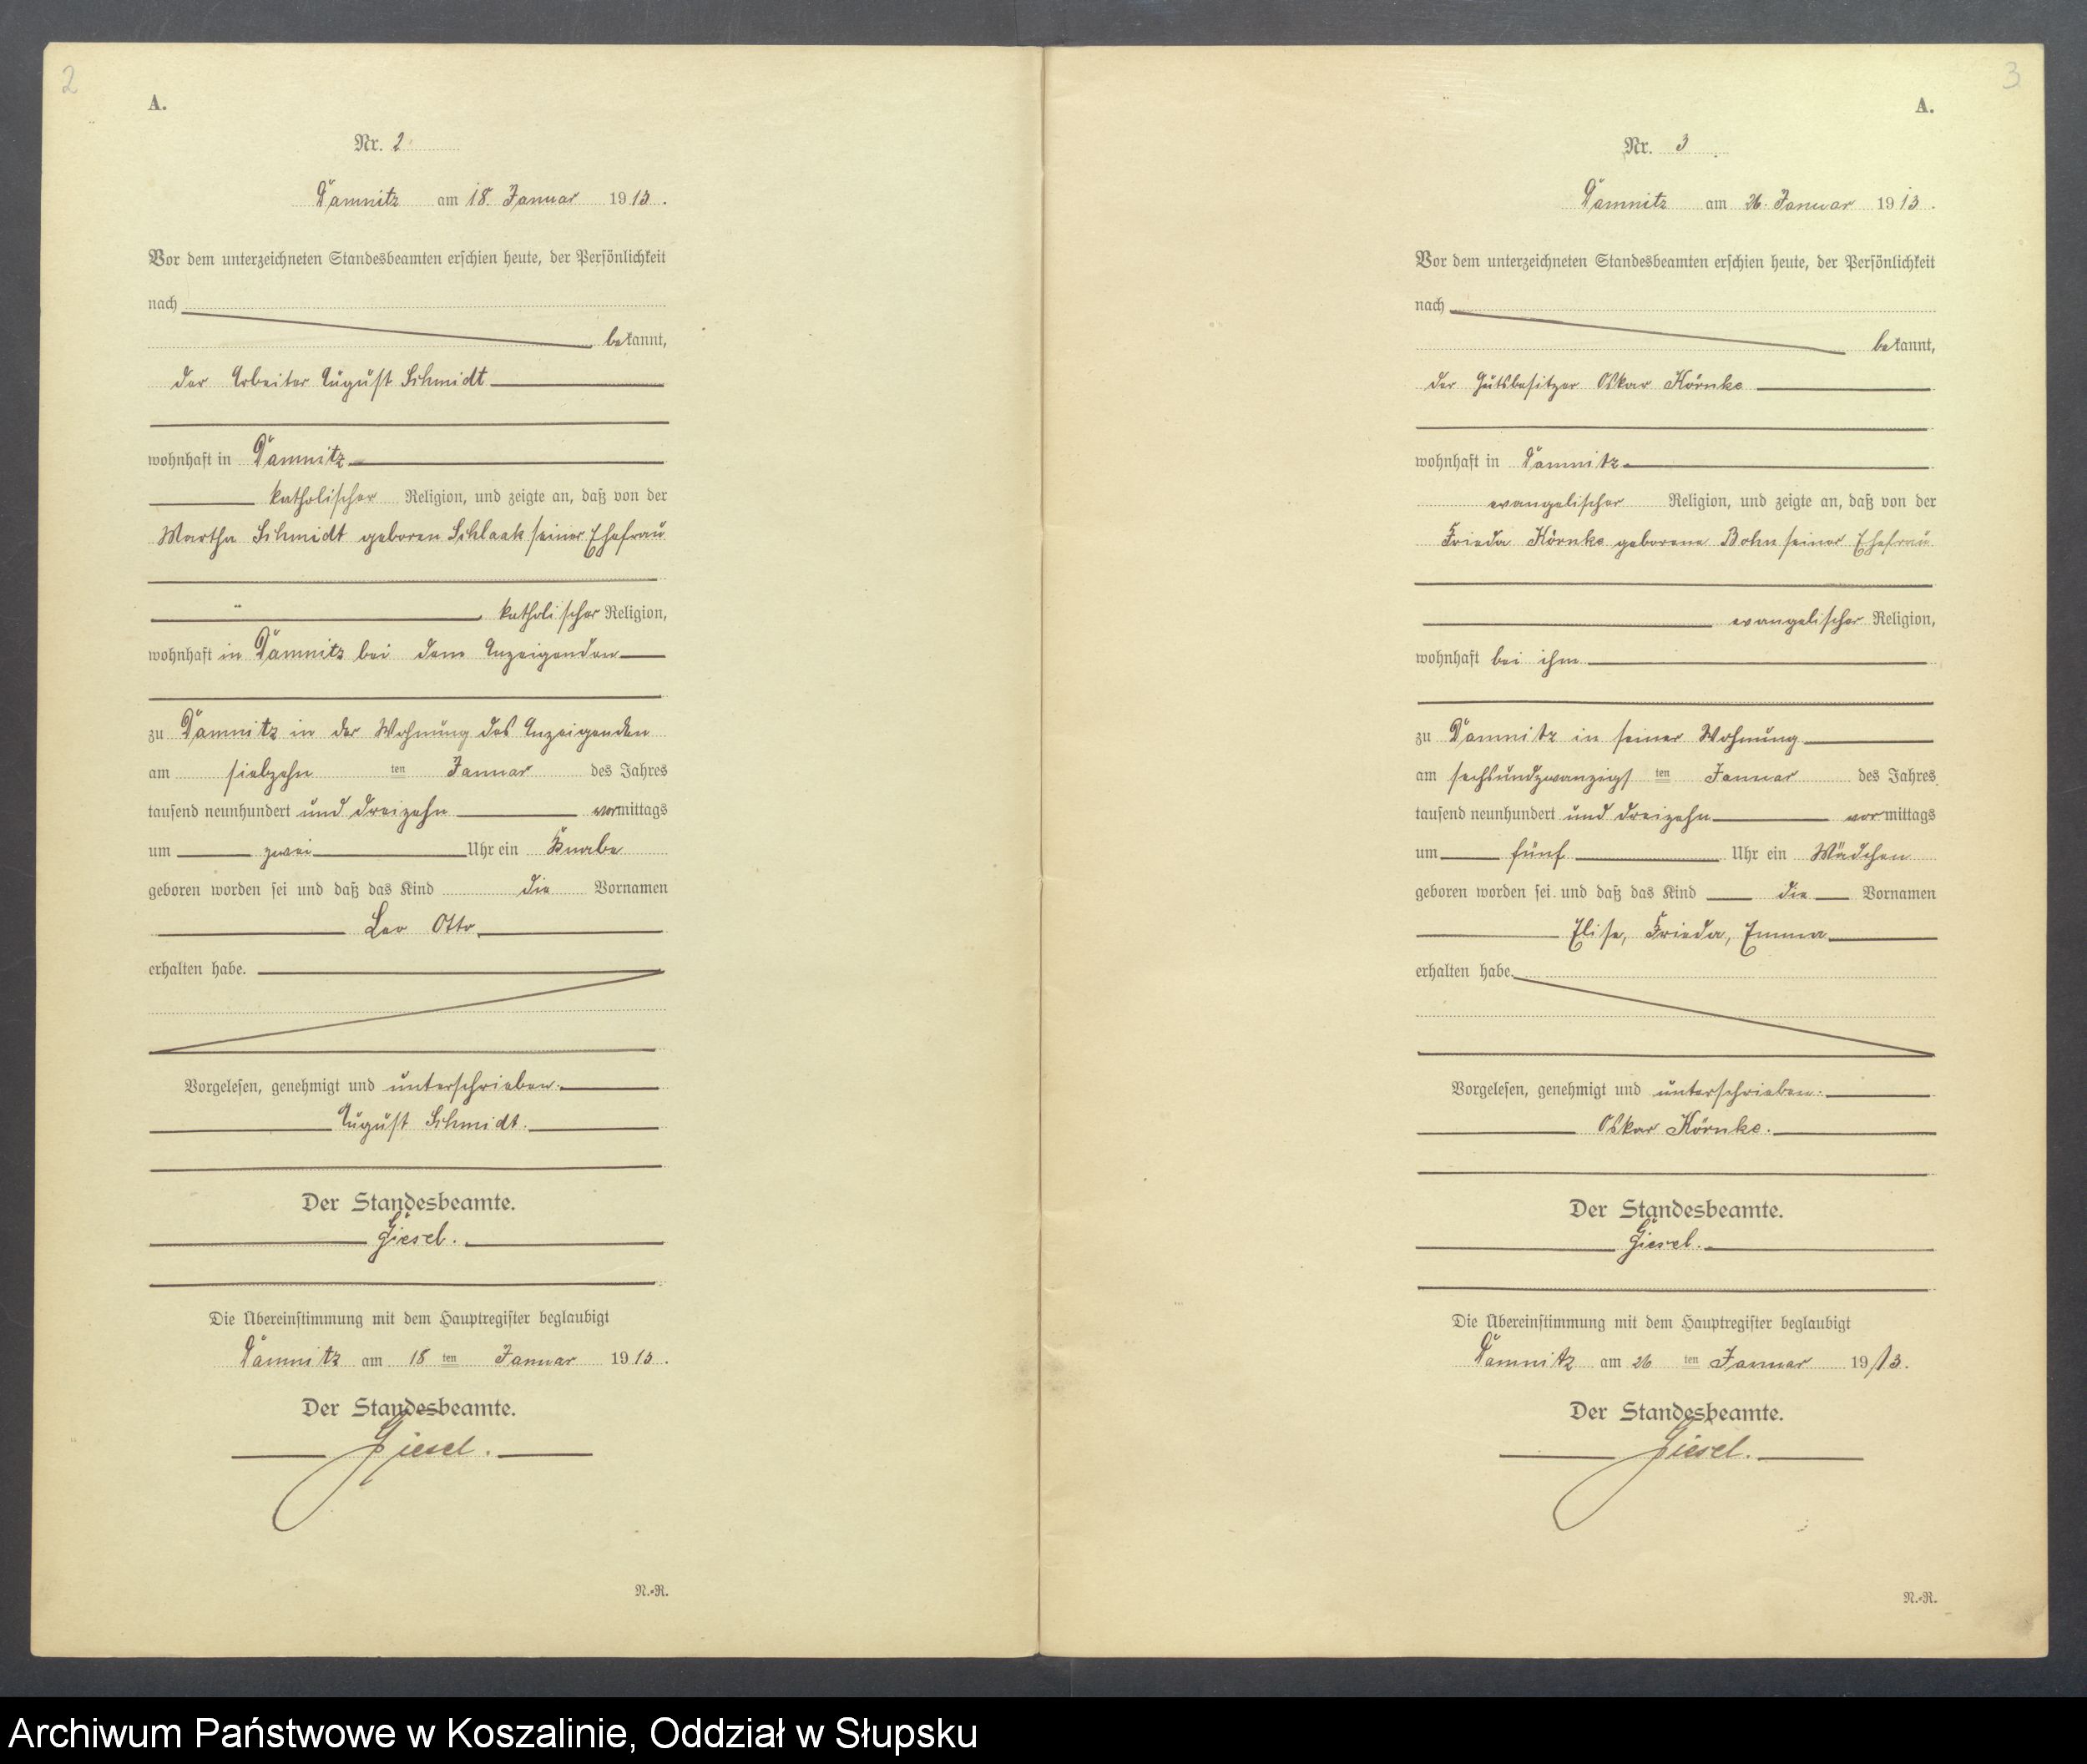 2
A.
Nr. 2
Damnitz am 18. Januar 1913.
Vor dem unterzeichneten Standesbeamten erschien heute, der Persönlichkeit
nach
bekannt,
der Arbeiter August Schmidt
wohnhaft in Damnitz
katholischer Religion, und zeigte an, daß von der
Martha Schmidt geboren Schlaak seiner Ehefrau
katholischer Religion,
wohnhaft in Damnitz bei dem Anzeigenden
zu Damnitz in der Wohnung des Anzeigenden
am siebzehn ten Januar des Jahres
tausend neunhundert und dreizehn vormittags
um zwei Uhr ein Knabe
geboren worden sei und daß das Kind die Vornamen
Leo Otto
erhalten habe.
Vorgelesen, genehmigt und unterschrieben.
August Schmidt.
Der Standesbeamte.
Giesel.
Die Übereinstimmung mit dem Hauptregister beglaubigt
Damnitz am 18 ten Januar 1913.
Der Standesbeamte.
Giesel.
N.-R.
3
A.
Nr. 3
Damnitz am 26. Januar 1913.
Vor dem unterzeichneten Standesbeamten erschien heute, der Persönlichkeit
nach
bekannt,
der Gutsbesitzer Oskar Körnke
wohnhaft in Damnitz
evangelischer Religion, und zeigte an, daß von der
Frieda Körnke geborene Bohn seiner Ehefrau
evangelischer Religion,
wohnhaft bei ihm
zu Damnitz in seiner Wohnung
am sechsundzwanzigs ten Januar des Jahres
tausend neunhundert und dreizehn vormittags
um fünf Uhr ein Mädchen
geboren worden sei und daß das Kind die Vornamen
Elise, Frieda, Emma
erhalten habe.
Vorgelesen, genehmigt und unterschrieben.
Oskar Körnke.
Der Standesbeamte.
Giesel.
Die Übereinstimmung mit dem Hauptregister beglaubigt
Damnitz am 26 ten Januar 1913.
Der Standesbeamte.
Giesel.
N.-R.
Archiwum Państwowe w Koszalinie, Oddział w Słupsku